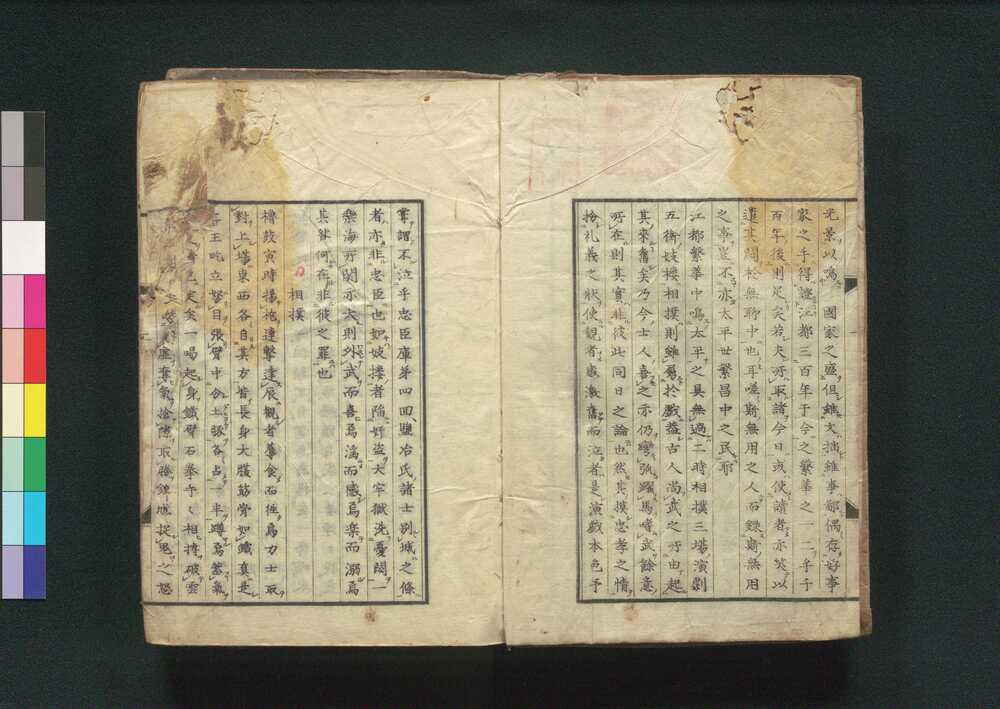 光景以鳴　國家之盛但雖文拙雖事鄙偶存好事
家之手得證江都三百年于今之繁華之一二乎千
百年後則足矣若夫所取諸今日或使讀者亦笑以
遣其悶於無聊中也耳嗟斯無用之人而錄斯無用
之事豈不亦太平世繁昌中之民耶
江都繁華中鳴太平之具無過二時相撲三場演劇
五街妓樓相撲則雖屬於戲蓋古人尚武之所由起
其來舊矣乃今士人喜之亦仍彎弧躍馬嗜武餘意
所在則其實非彼此同日之論也然其摸忠孝之情
扮礼義之狀使觀者感激奮而泣者是演戲本色予
常謂不泣乎忠臣庫第四回鹽冶氏諸士別城之條
者亦非忠臣也如妓樓者陥好盗大牢獄洗憂悶一
樂海所關亦大則外武而喜焉溢而感焉楽而溺焉
其咎何在非彼之罪也
相撲
櫓鼓寅時揚枹連擊達辰觀者蓐食而往焉力士取
對上場東西各自其方皆長身大腹筋骨如鐵真是
王屹立努目張臂中分土豚各占一半蹲焉蓄氣
已定矣一喝起身鐵臂石拳手々相搏破雲
電奪氣搶隙取勝鍾馗捉鬼之怒